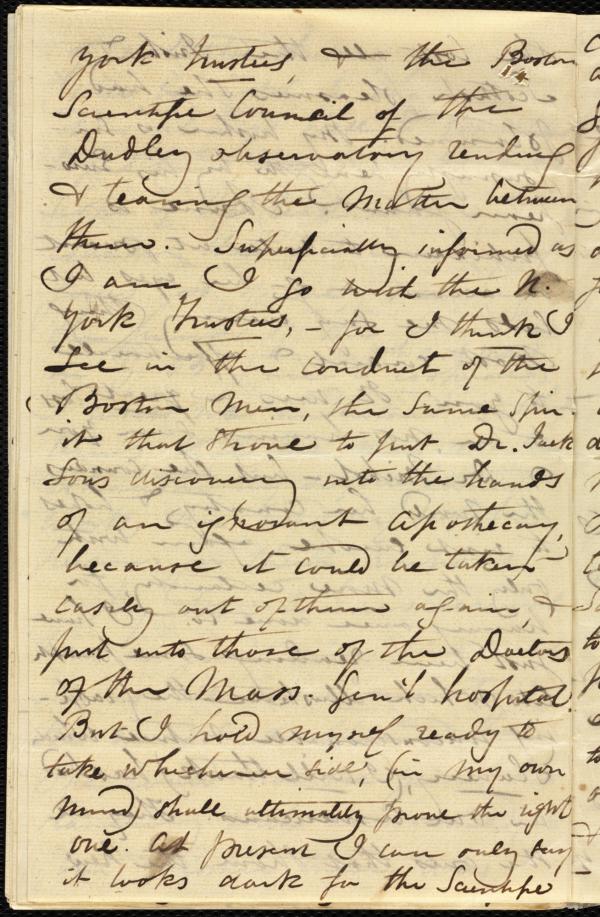 York trustees, & the Boston
Scientific Council of the
Dudley observatory rending
& tearing the matter between
them. Superficially informed as
I am I go with the N.
York Trustees, – for I think I
see in the conduct of the
Boston Men, the same spir-
it that strove to put Dr. Jack
sons discovery into the hands
of an ignorant apothecary,
because it could be taken
easily out of them again, &
put into those of the Doctors
of the Mass. Gen'l hospital.
But I hold myself ready to
take whichever side, (in my own
mind) shall ultimately prove the right
one. At present I can only say
it looks dark for the Scientific